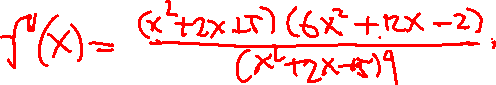 f''(x) = \frac{(x^2+2x+5)(6x^2+12x-2)}{(x^2+2x+5)^4}.